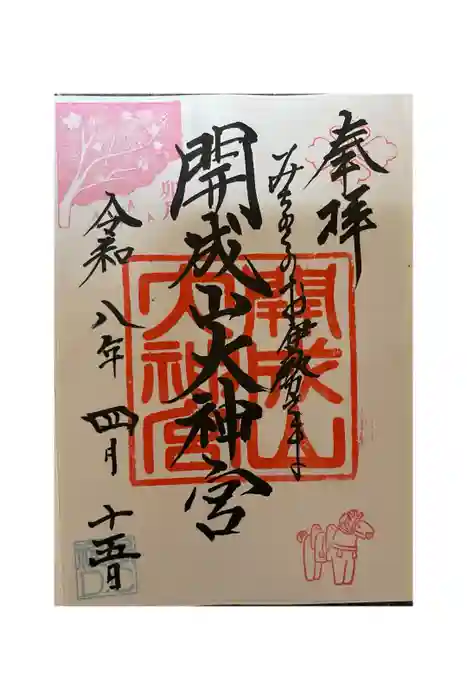 奉拝
みちのくのお伊勢さま
開成山大神宮
令和八年四月十五日
開成山大神宮
卯月